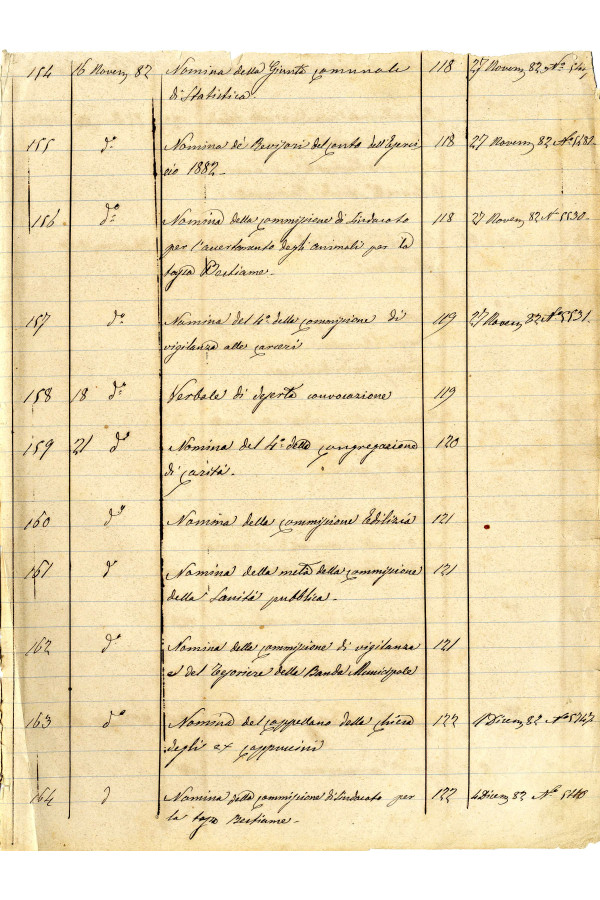 154 16 Novem 82 Nomina della Giunta comunale 118 27 Novem 82 Nº
di Statistica.
155 dº Nomina de' Revisori del conto dell'Eserci 118 27 Novem 82 Nº 5281.
cio 1882.
156 dº Nomina della commissione di sindacato 118 27 Novem 82 Nº 5530
per l'accertamento degli animali per la
tassa Bestiame.
157 dº Nomina del 4º della commissione di 119 27 Novem 82 Nº 5531.
vigilanza alle carceri
158 18 dº Verbale di deserta convocazione 119
159 21 dº Nomina del 4º della congregazione 120
di carità.
160 dº Nomina della commissione Edilizia 121
161 d Nomina della metà della commissione 121
della Sanità pubblica.
162 dº Nomina della commissione di vigilanza 121
e del Tesoriere della Banda Municipale
163 dº Nomina del cappellano della chiesa 122 1 Dicem 82 Nº
degli ex cappuccini
164 d Nomina della commissione di sindacato per 122 4 Dicem 82 Nº
la tassa Bestiame.